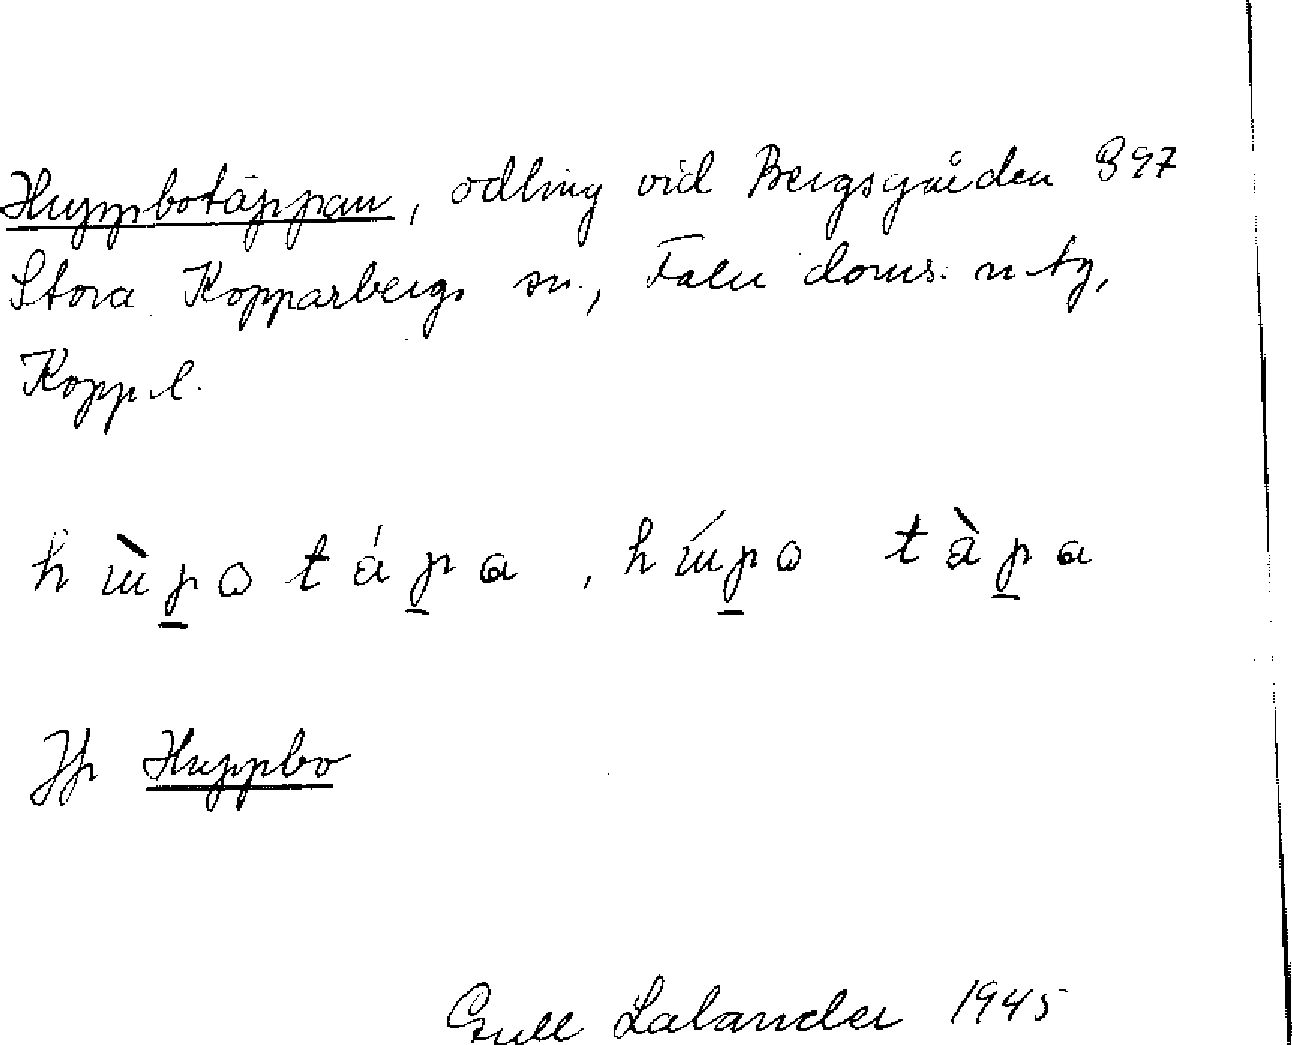 Huppbotäppan, odling vid Bergsgården 897
Stora Kopparbergs sn., Falu doms. ntg,
Kopp. l.
Jfr Huppbo
Gull Lalander 1945